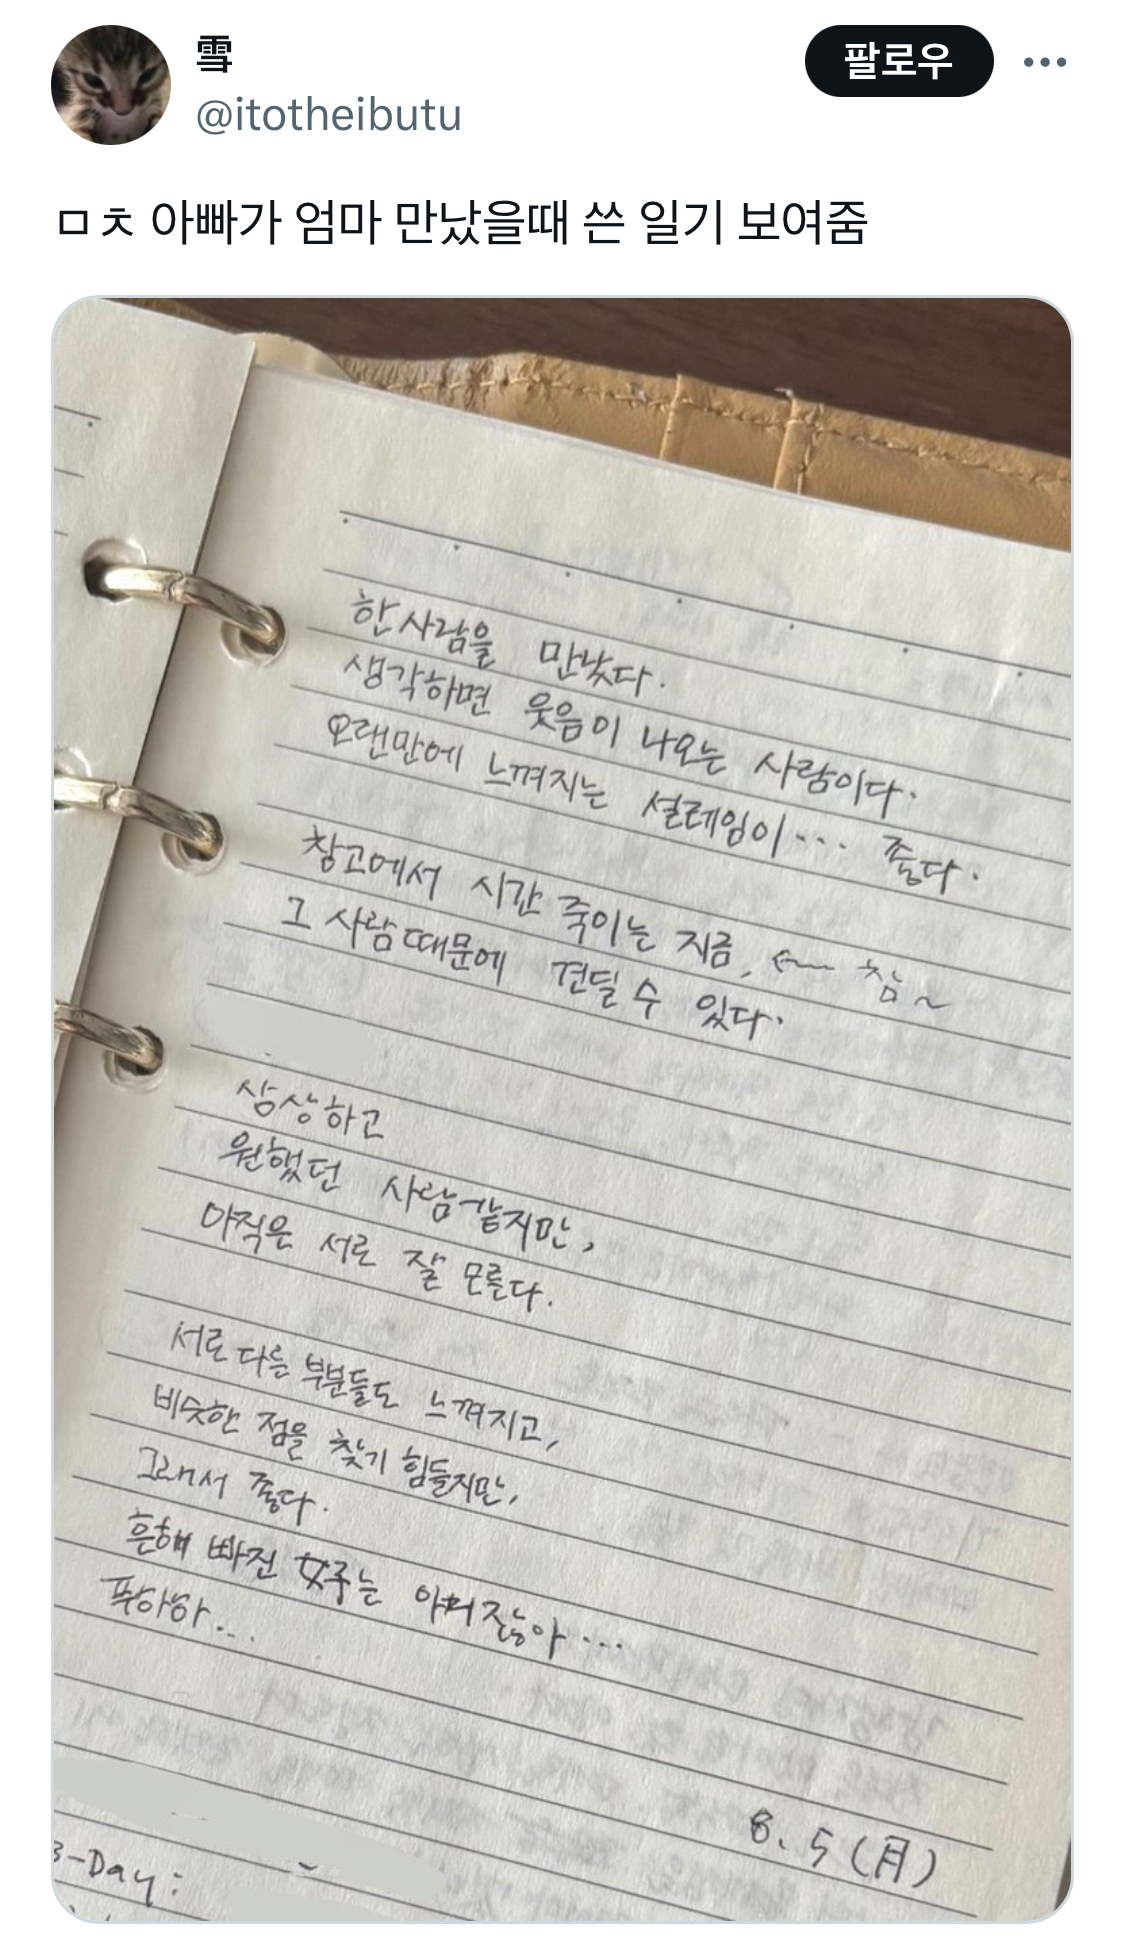 雪
팔로우
@itotheibutu
ㅁㅊ 아빠가 엄마 만났을때 쓴 일기 보여줌
한 사람을 만났다.
생각하면 웃음이 나오는 사람이다.
오랜만에 느껴지는 설레임이... 좋다.
창고에서 시간 죽이는 지금, ← 참~
그 사람 때문에 견딜 수 있다.
상상하고
원했던 사람 같지만,
아직은 서로 잘 모른다.
서로 다른 부분들도 느껴지고,
비슷한 점을 찾기 힘들지만,
그래서 좋다.
흔해 빠진 女子는 아니잖아...
푸하하...
8. 5 (月)
B-Day: